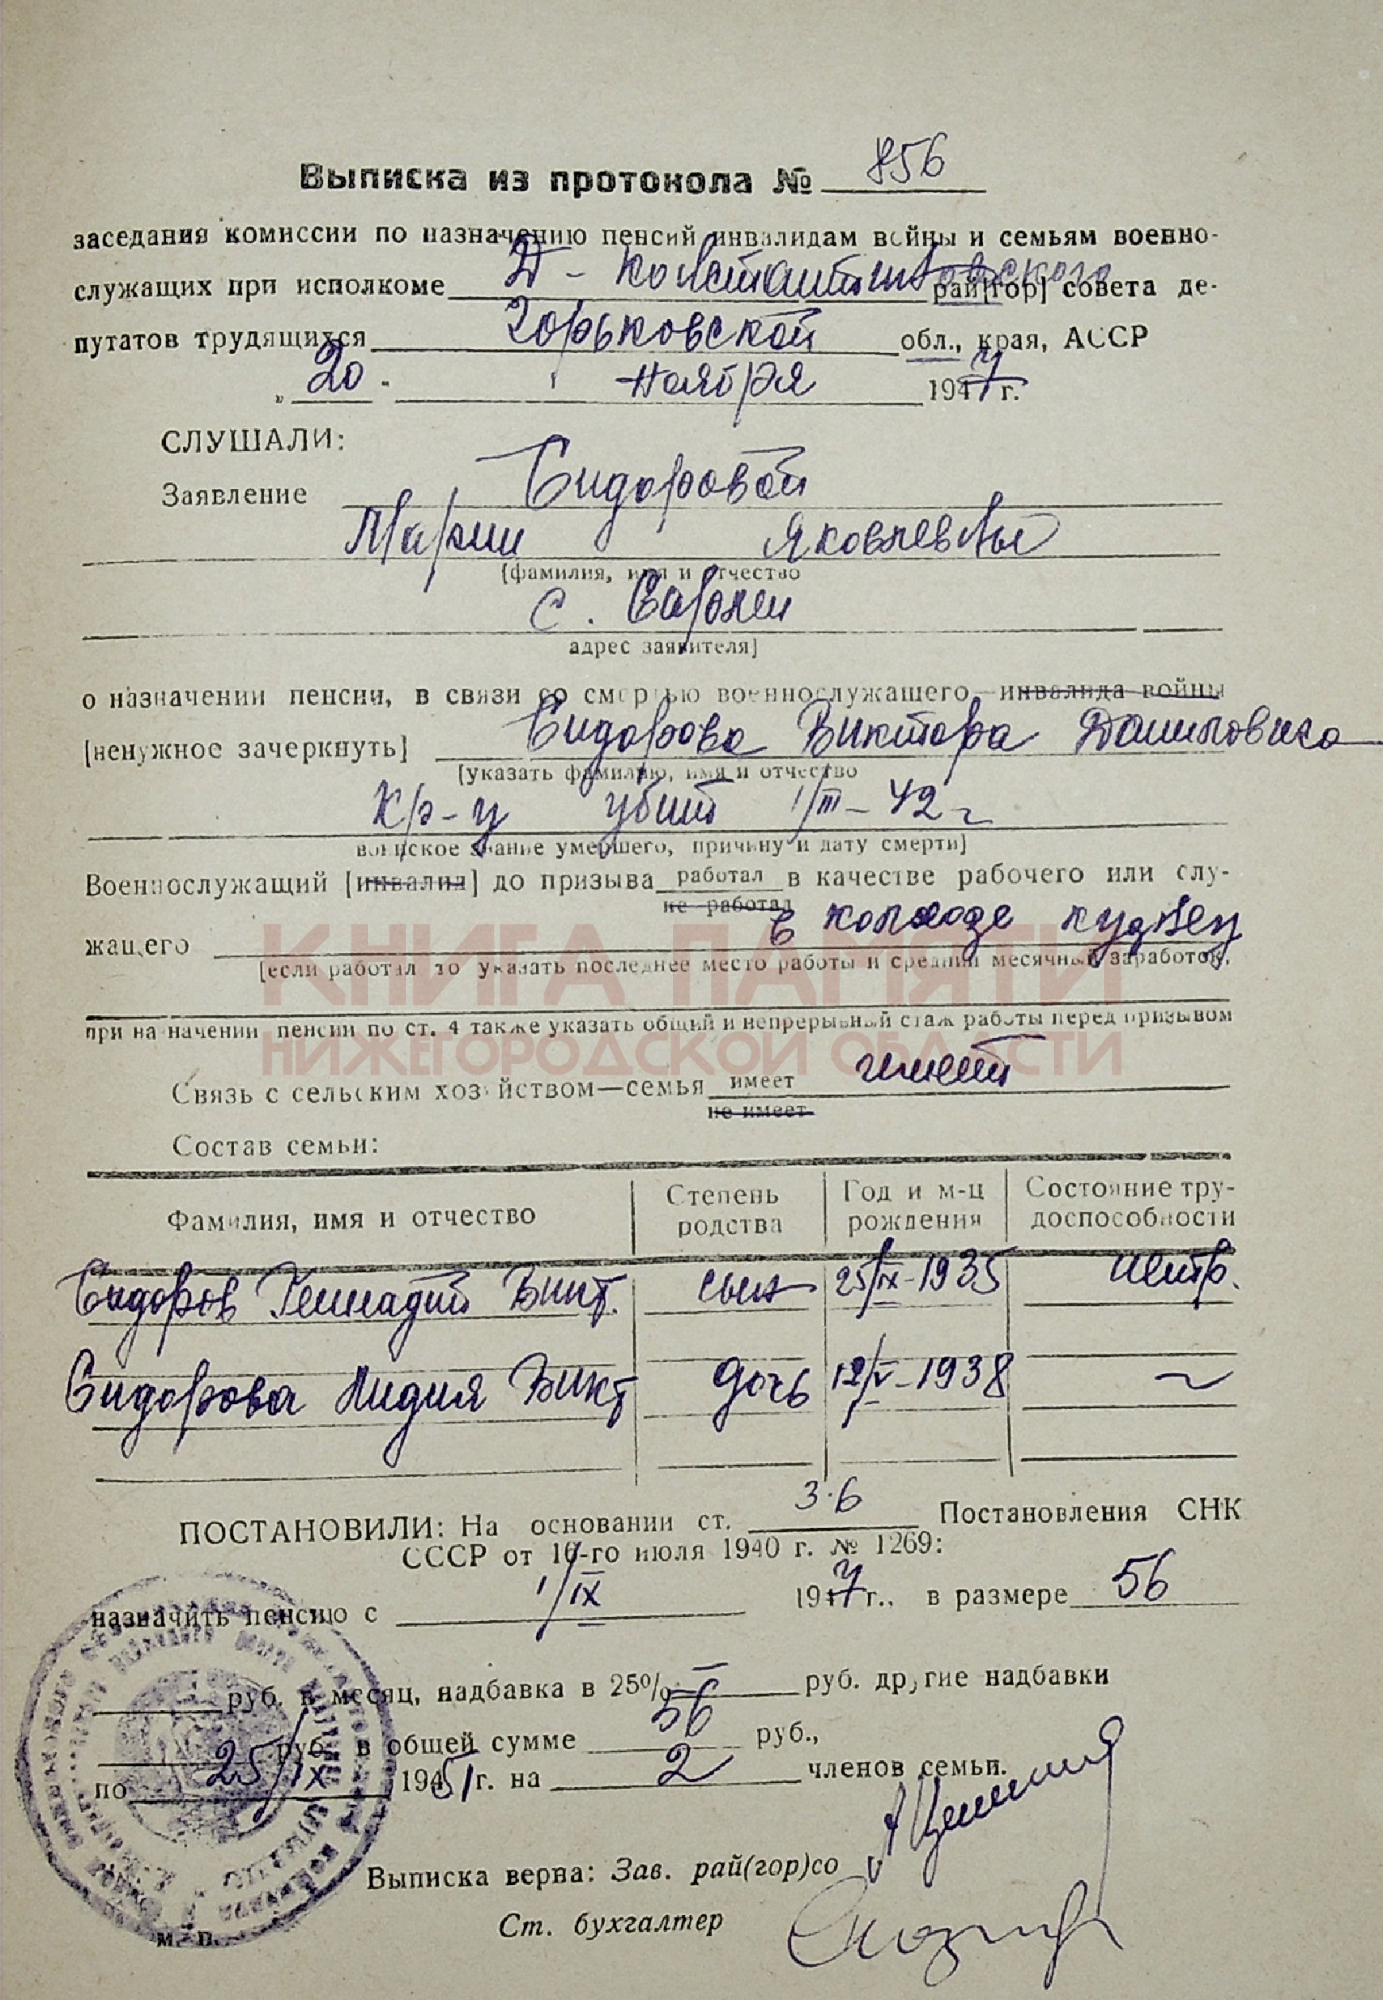 Выписка из протокола № 856
заседания комиссии по назначению пенсий инвалидам войны и семьям военно-
служащих при исполкоме Д-Константиновского рай[гор] совета де-
путатов трудящихся Горьковской обл., края, АССР
„ 20 " ноября 1947 г.
СЛУШАЛИ:
Заявление Сидоровой
Марии Яковлевны
[фамилия, имя и отчество
с. Сарлеи
адрес заявителя]
о назначении пенсии, в связи со смертью военнослужащего—инвалида войны
[ненужное зачеркнуть] Сидорова Виктора Даниловича
[указать фамилию, имя и отчество
Кр-ц убит 1/III-42 г
воинское звание умершего, причину и дату смерти]
Военнослужащий [инвалид] до призыва работал в качестве рабочего или слу-
не работал
жащего в колхозе кузнец
[если работал то указать последнее место работы и средний месячный заработок,
КНИГА ПАМЯТИ
при назначении пенсии по ст. 4 также указать общий и непрерывный стаж работы перед призывом
НИЖЕГОРОДСКОЙ ОБЛАСТИ
Связь с сельским хозяйством—семья имеет имеет
не имеет
Состав семьи:
Фамилия, имя и отчество Степень родства Год и м-ц рождения Состояние тру-доспособности
Сидоров Геннадий Викт. сын 25/IX-1935 нетр.
Сидорова Лидия Викт дочь 12/V-1938 ~
ПОСТАНОВИЛИ: На основании ст. 3.6 Постановления СНК
СССР от 16-го июля 1940 г. № 1269:
назначить пенсию с 1/IX 1947 г., в размере 56
руб. в месяц, надбавка в 25% — руб. другие надбавки
руб. в общей сумме 56 руб.,
по 25/IX 1951 г. на 2 членов семьи.
Выписка верна: Зав. рай(гор)со
Ст. бухгалтер
м. п.